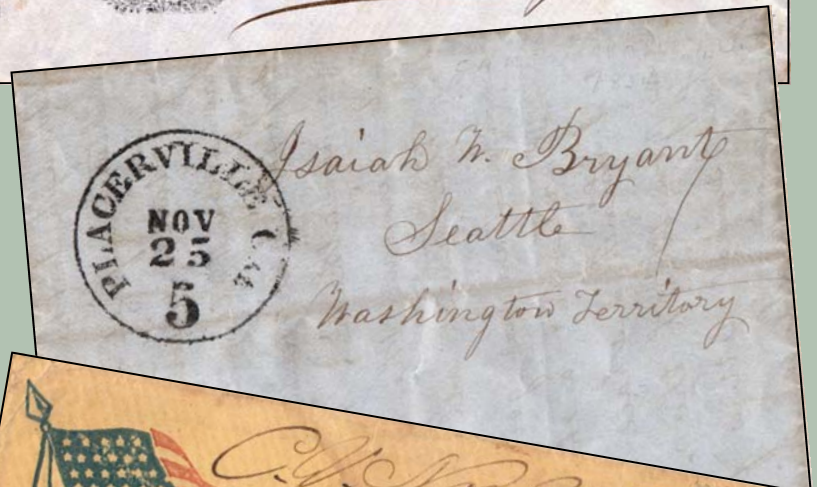 PLACERVILLE Cal
NOV
25
5
Isaiah W. Bryant
Seattle
Washington Territory